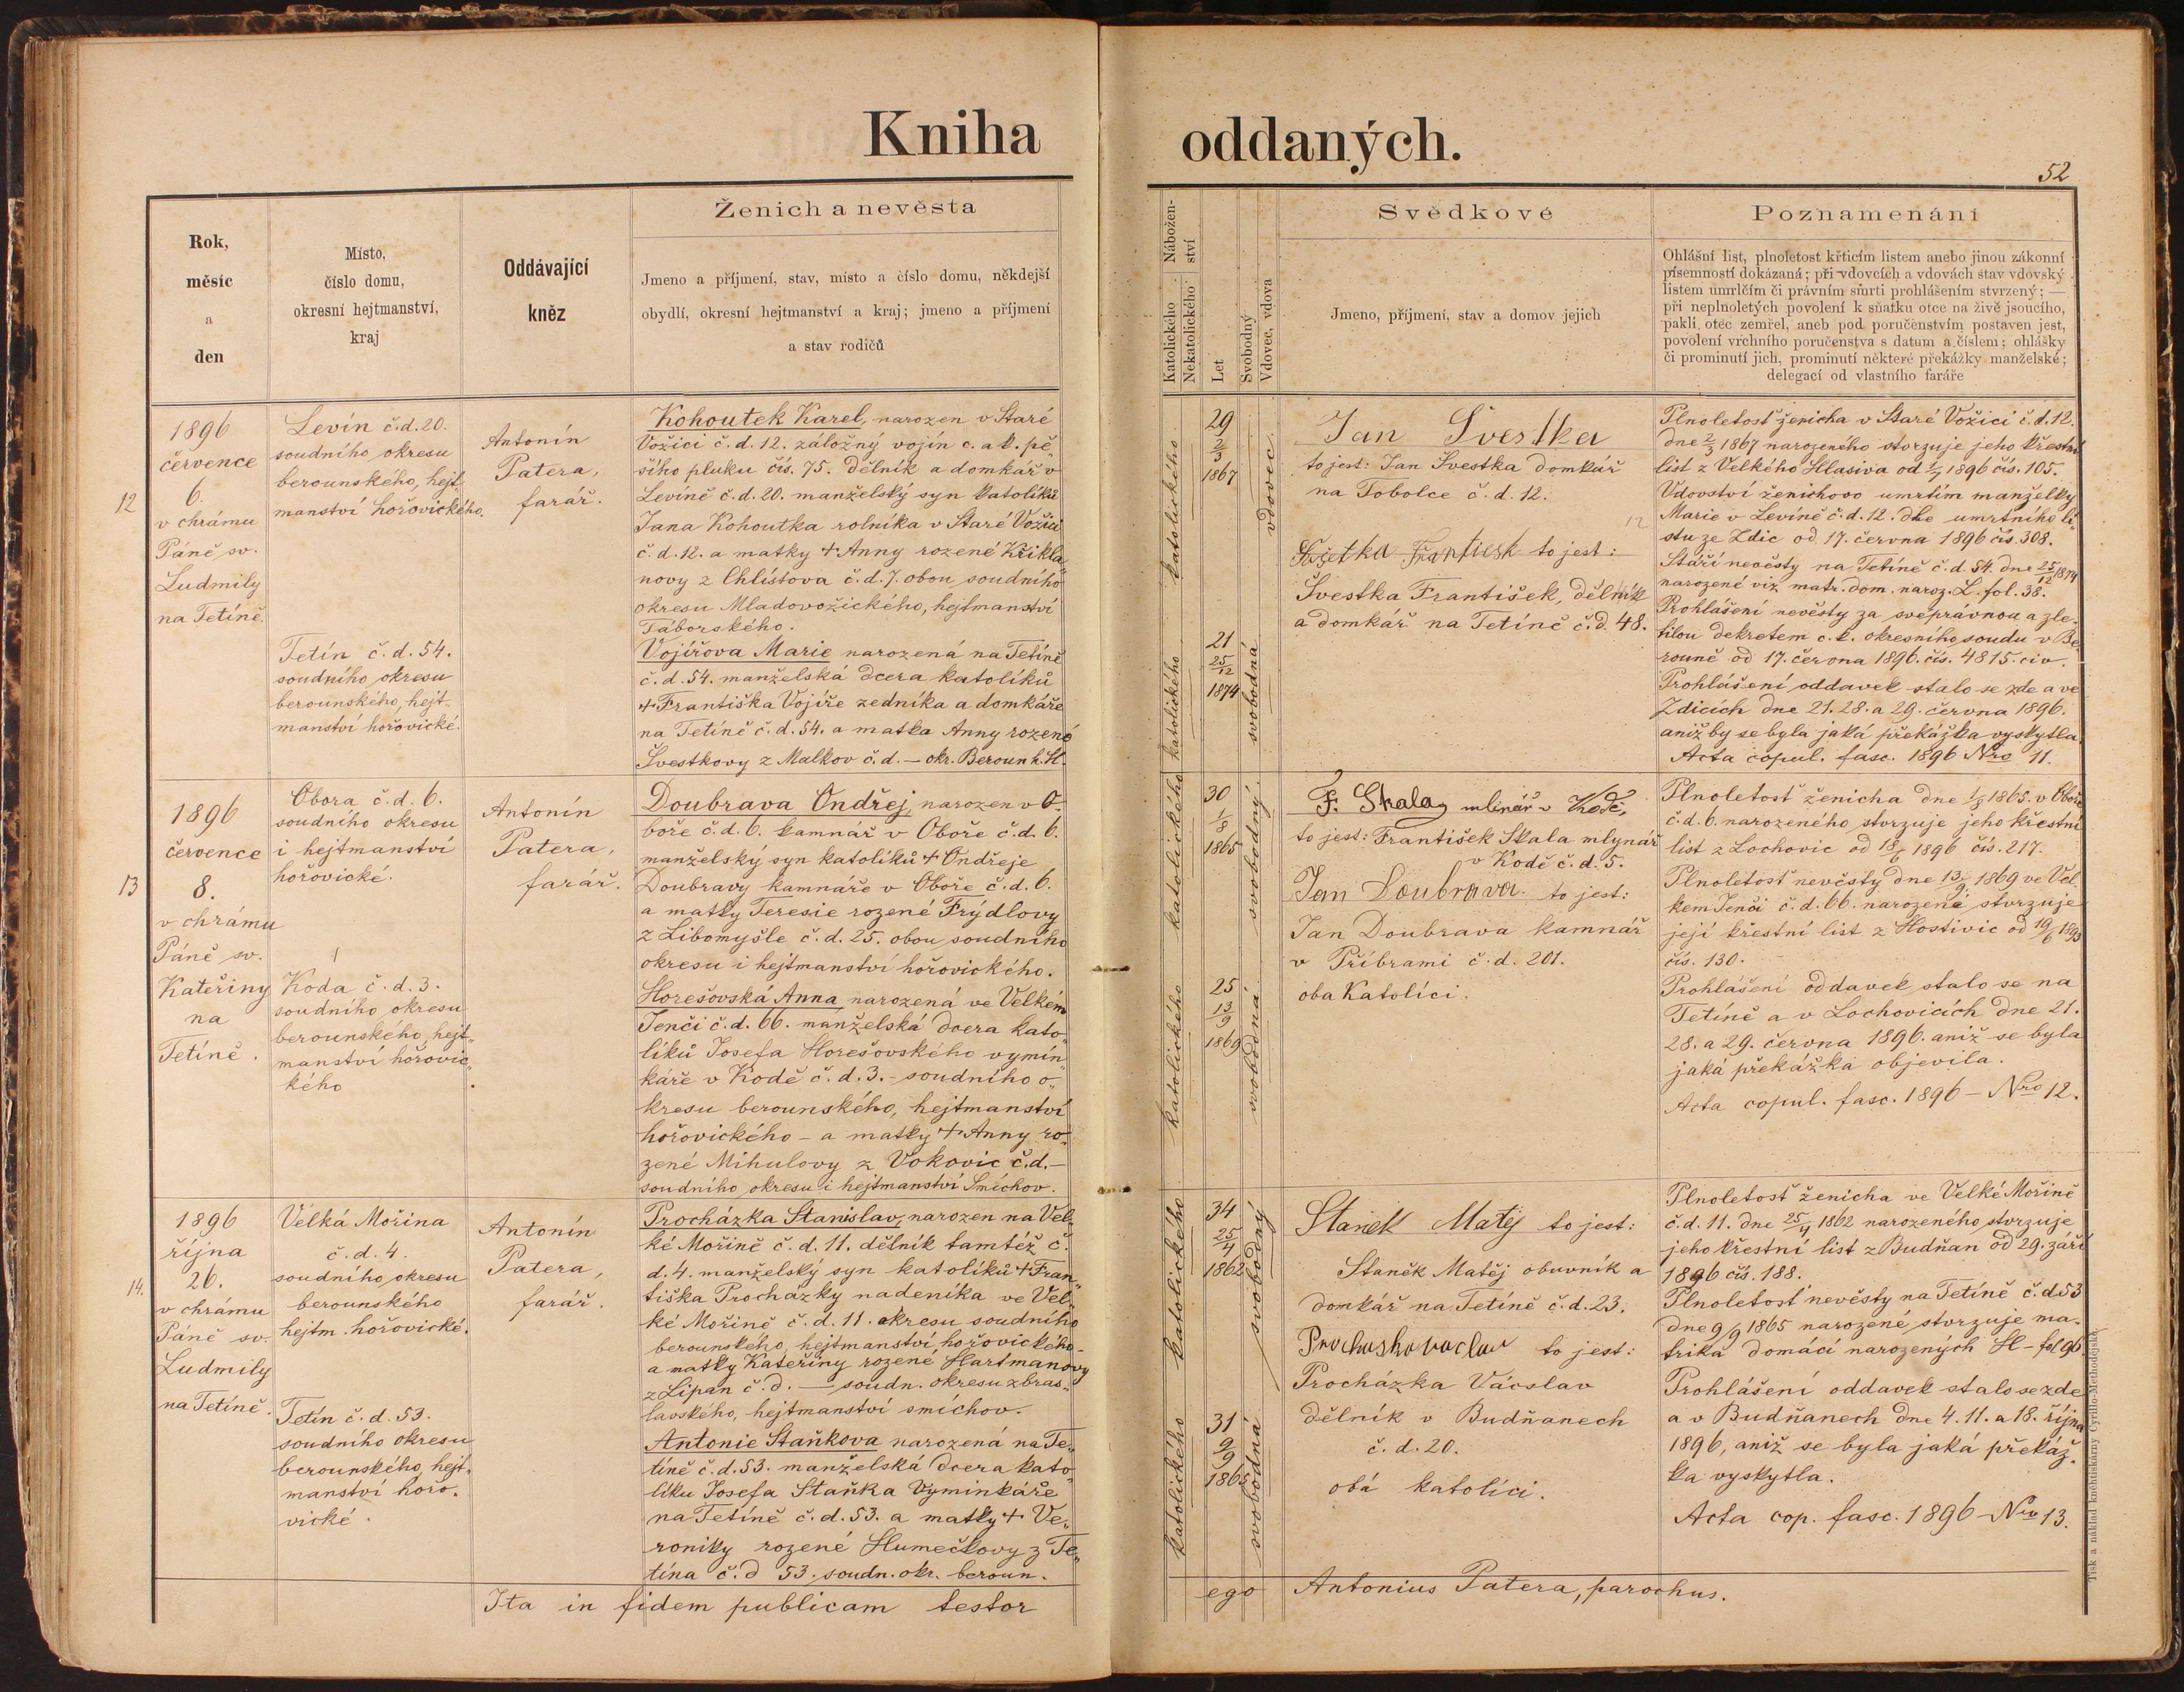 Kniha oddaných.
52
Rok,
měsíc
a
den
Místo,
číslo domu,
okresní hejtmanství,
kraj
Oddávající
kněz
Ženich a nevěsta
Jmeno a příjmení, stav, místo a číslo domu, někdejší
obydlí, okresní hejtmanství a kraj; jmeno a příjmení
a stav rodičů
Nábožen-
ství
Katolického
Nekatolického
Let
Svobodný
Vdovec, vdova
Svědkové
Jmeno, příjmení, stav a domov jejich
Poznamenání
Ohlášní list, plnoletost křticím listem anebo jinou zákonní
písemností dokázaná; při vdovcích a vdovách stav vdovský
listem úmrlčím či právním smrti prohlášením stvrzený; —
při neplnoletých povolení k sňatku otce na živě jsoucího,
pakli otec zemřel, aneb pod poručenstvím postaven jest,
povolení vrchního poručenstva s datum a číslem; ohlášky
či prominutí jich, prominutí některé překážky manželské;
delegací od vlastního faráře
12
1896
července
6.
v chrámu
Páně sv.
Ludmily
na Tetíně.
Levín č.d. 20.
soudního okresu
berounského, hejt
manství hořovického.
Tetín č.d. 54.
soudního okresu
berounského, hejt-
manství hořovické.
Antonín
Patera,
farář.
Kohoutek Karel, narozen v Staré
Vožici č.d. 12. záložný vojín c. a k. pě-
šího pluku čís. 75. dělník a domkář v
Levíně č.d. 20. manželský syn katolíků
Jana Kohoutka rolníka v Staré Vožici
č.d. 12. a matky + Anny rozené Křikla-
novy z Chlístova č.d. 7. obou soudního
okresu Mladovožického, hejtmanství
Táborského.
Vojířova Marie narozená na Tetíně
č.d. 54. manželská dcera katolíků
+ Františka Vojíře zedníka a domkáře
na Tetíně č.d. 54. a matka Anny rozené
Švestkovy z Malkov č.d. — okr. Beroun h. H.
katolického
29
2/3
1867
vdovec
katolického
21
25/12
1874
svobodná
Jan Švestka
to jest: Jan Švestka domkář
na Tobolce č.d. 12.
12
František to jest:
Švestka František, dělník
a domkář na Tetíně č.d. 48.
Plnoletosť ženicha v Staré Vožici č.d. 12.
dne 2/3 1867 narozeného stvrzuje jeho křestní
list z Velkého Hlasiva od 1896 čís. 105.
Vdovství ženichovo umrtím manželky
Marie v Levíně č.d. 12. dle umrtního li-
stu ze Zdic od 17. června 1896 čís. 308.
Stáří nevěsty na Tetíně č.d. 54. dne 25/12 1874
narozené viz matr. dom. naroz. L. fol. 38.
Prohlášení nevěsty za sveprávnou a zle-
tilou dekretem c.k. okresního soudu v Be-
rouně od 17. června 1896. čís. 4815. civ.
Prohlášení oddavek stalo se zde a ve
Zdicích dne 21. 28. a 29. června 1896.
aniž by se byla jaká překážka vyskytla.
Acta copul. fasc. 1896 Nro 11.
13
1896
července
8.
v chrámu
Páně sv.
Kateřiny
na
Tetíně.
Obora č.d. 6.
soudního okresu
i hejtmanství
hořovické.
Koda č.d. 3.
soudního okresu
berounského, hejt-
manství hořovic-
kého
Antonín
Patera,
farář.
Doubrava Ondřej, narozen v O-
boře č.d. 6. kamnář v Oboře č.d. 6.
manželský syn katolíků + Ondřeje
Doubravy kamnáře v Oboře č.d. 6.
a matky Teresie rozené Frýdlovy
z Libomyšle č.d. 25. obou soudního
okresu i hejtmanství hořovického.
Horešovská Anna narozená ve Velkém
Jenči č.d. 66. manželská dcera kato-
líků Josefa Horešovského vymin-
káře v Kodě č.d. 3.- soudního o-
kresu berounského, hejtmanství
hořovického - a matky + Anny ro-
zené Mihulovy z Vokovic č.d. —
soudního okresu i hejtmanství Smíchov.
katolického
30
1/8
1865
svobodný
katolického
25
13/9
1869
svobodná
F. Skala mlinář v Kodě,
to jest: František Skala mlynář
v Kodě č.d. 5.
Jan Doubrava to jest:
Jan Doubrava kamnář
v Příbrami č.d. 201.
oba Katolíci.
Plnoletosť ženicha dne 1/8 1865. v Oboře
č.d. 6. narozeného stvrzuje jeho křestní
list z Lochovic od 18/6 1896 čís. 217.
Plnoletosť nevěsty dne 13/9 1869 ve Vel-
kem Jenči č.d. 66. narozené stvrzuje
její křestní list z Hostivic od 19/6 1893
čís. 130.
Prohlášení oddavek stalo se na
Tetíně a v Lochovicích dne 21.
28. a 29. června 1896. aniž se byla
jaká překážka objevila.
Acta copul. fasc. 1896 — Nro 12.
14.
1896
října
26.
v chrámu
Páně sv.
Ludmily
na Tetíně.
Velká Mořina
č.d. 4.
soudního okresu
berounského
hejtm. hořovické.
Tetín č.d. 53.
soudního okresu
berounského, hejt-
manství hořo-
vické.
Antonín
Patera,
farář.
Procházka Stanislav, narozen na Vel-
ké Mořině č.d. 11. dělník tamtéž č.
d. 4. manželský syn katolíků + Fran-
tiška Procházky nadeníka ve Vel-
ké Mořině č.d. 11. okresu soudního
berounského, hejtmanství hořovického -
a matky Kateřiny rozené Hartmanovy
z Lipan č.d. — soudn. okresu zbras-
lavského, hejtmanství smíchov.
Antonie Staňkova narozená na Te-
tíně č.d. 53. manželská dcera kato-
líku Josefa Staňka Vyminkáře
na Tetíně č.d. 53. a matky + Ve-
roniky rozené Humečkovy z Te-
tína č.d 53. soudn. okr. beroun.
katolického
34
25/4
1862
svobodný
katolického
31
9/9
1865
svobodná
Staněk Matěj to jest:
Staněk Matěj obuvník a
domkář na Tetíně č.d. 23.
Prochaska vaclav to jest:
Procházka Václav
dělník v Budňanech
č.d. 20.
obá katolíci.
Plnoletosť ženicha ve Velké Mořině
č.d. 11. dne 25/4 1862 narozeného stvrzuje
jeho křestní list z Budňan od 29. září
1896 čís. 188.
Plnoletosť nevěsty na Tetíně č.d 53
dne 9/9 1865 narozené stvrzuje ma-
trika domácí narozených H - fol 96.
Prohlášení oddavek stalo se zde
a v Budňanech dne 4. 11. a 18. října
1896, aniž se byla jaká překáž-
ka vyskytla.
Acta cop. fasc. 1896 — Nro 13.
Ita in fidem publicam testor ego Antonius Patera, parochus.
Tisk a náklad knihtiskárny Cyrillo-Methodějské